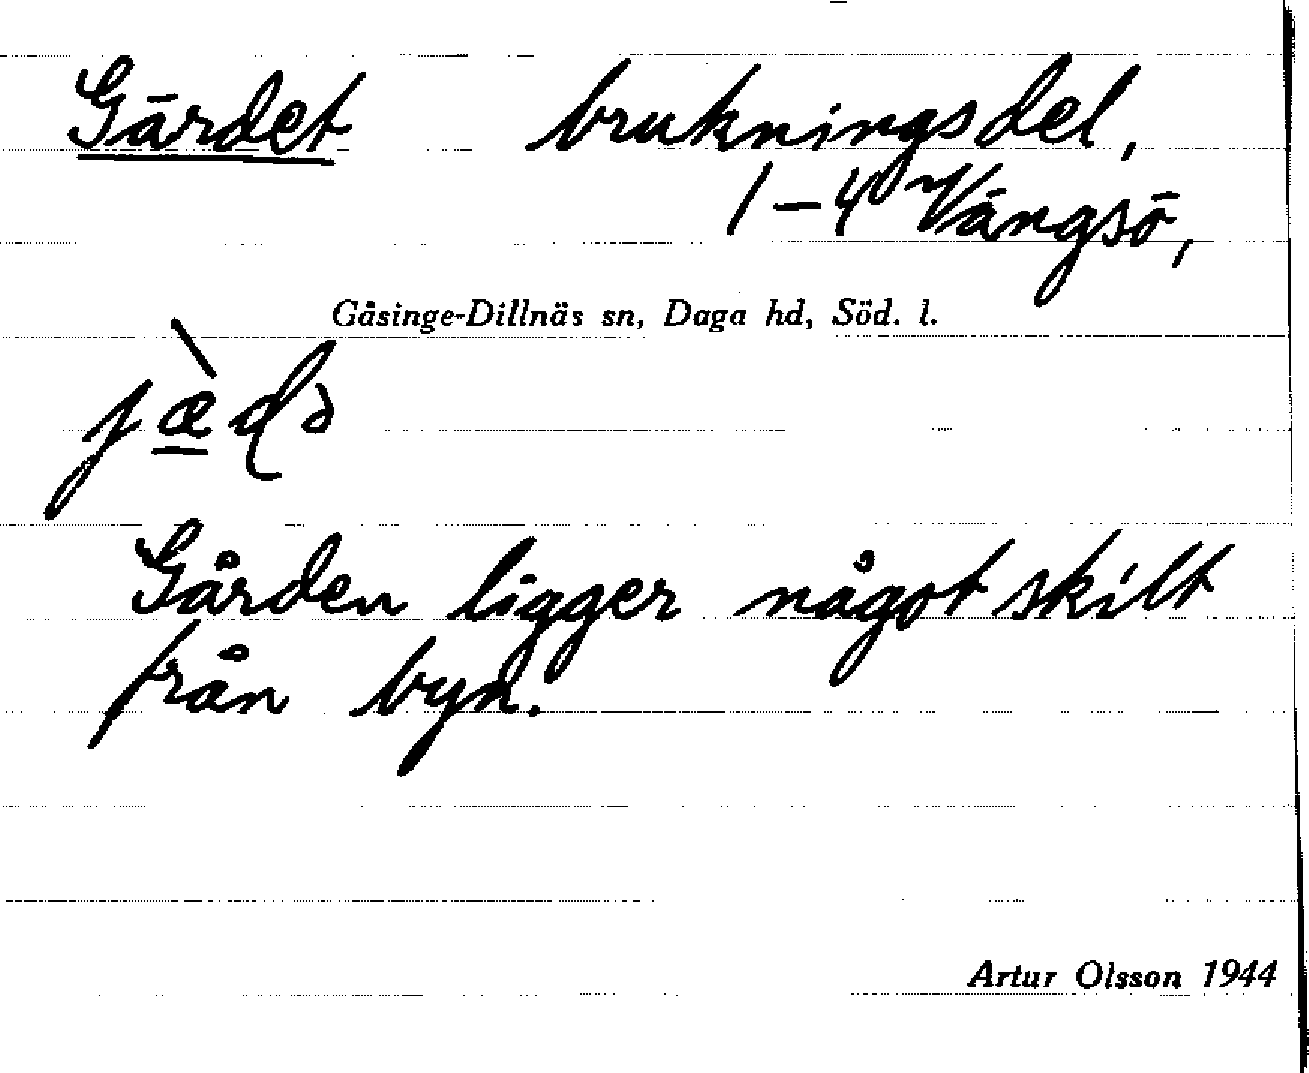 Gärdet brukningsdel,
1–4 Vängsö,
Gåsinge-Dillnäs sn, Daga hd, Söd. l.
Gården ligger något skilt
från byn.
Artur Olsson 1944